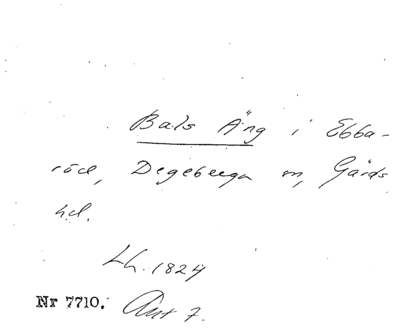 Bals Äng i Ebba-
röd, Degeberga sn, Gärds
hd.
Lh. 1824
Nr 7710. Ant 7.